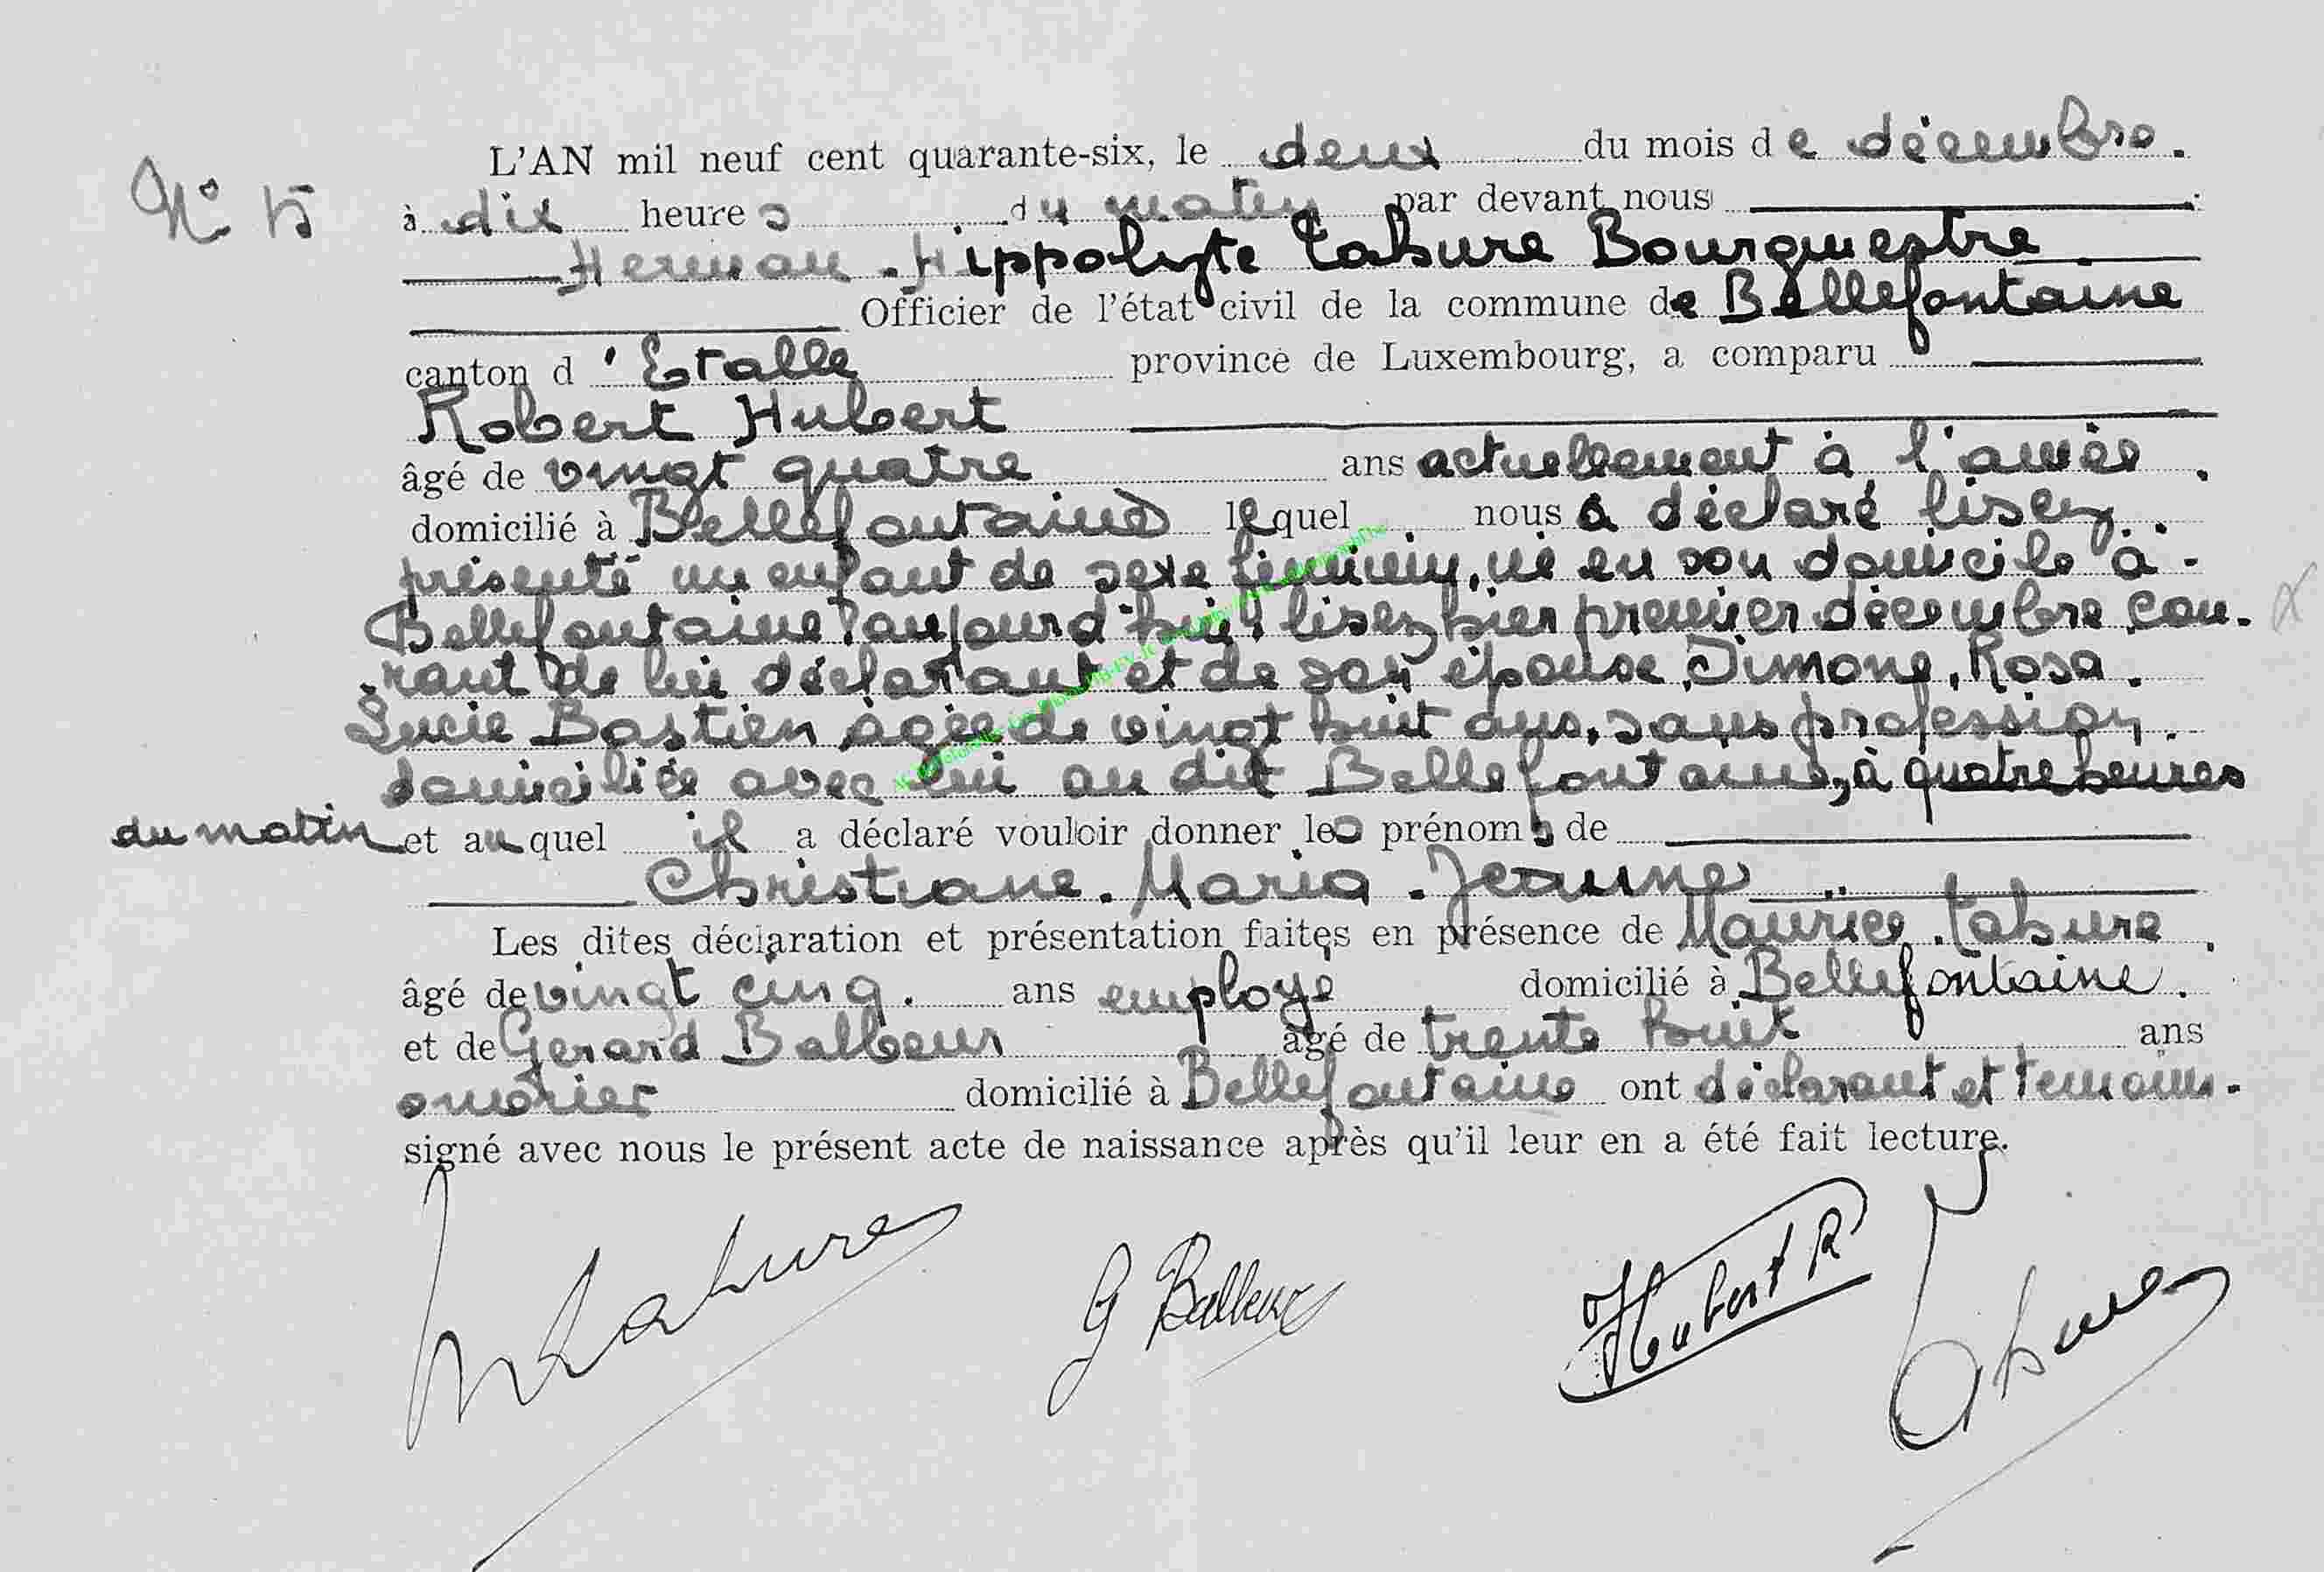 L'AN mil neuf cent quarante-six, le deux du mois de décembre.
N° 15 à dix heures du matin par devant nous
Herman. Hippolyte Lahure Bourgmestre
Officier de l'état civil de la commune de Bellefontaine
canton d'Etalle province de Luxembourg, a comparu
Robert Hubert
âgé de vingt quatre ans actuellement à l'armée.
domicilié à Bellefontaine lequel nous a déclaré lisez
présenté un enfant de sexe féminin, né en son domicile à
Bellefontaine aujourd'hui lisez hier premier décembre cou-
rant de lui déclarant et de son épouse Simone, Rosa.
Lucie Bastien âgée de vingt huit ans, sans profession.
domiciliée avec lui au dit Bellefontaine, à quatre heures
du matin et auquel il a déclaré vouloir donner les prénoms de
Christiane. Maria. Jeanne
Les dites déclaration et présentation faites en présence de Maurice. Lahure.
âgé de vingt cinq. ans employé domicilié à Bellefontaine.
et de Gerard Balbeur âgé de trente huit ans
ouvrier domicilié à Bellefontaine ont déclarant et temoins.
signé avec nous le présent acte de naissance après qu'il leur en a été fait lecture.
Lahure G Balbeur Hubert R Lahure